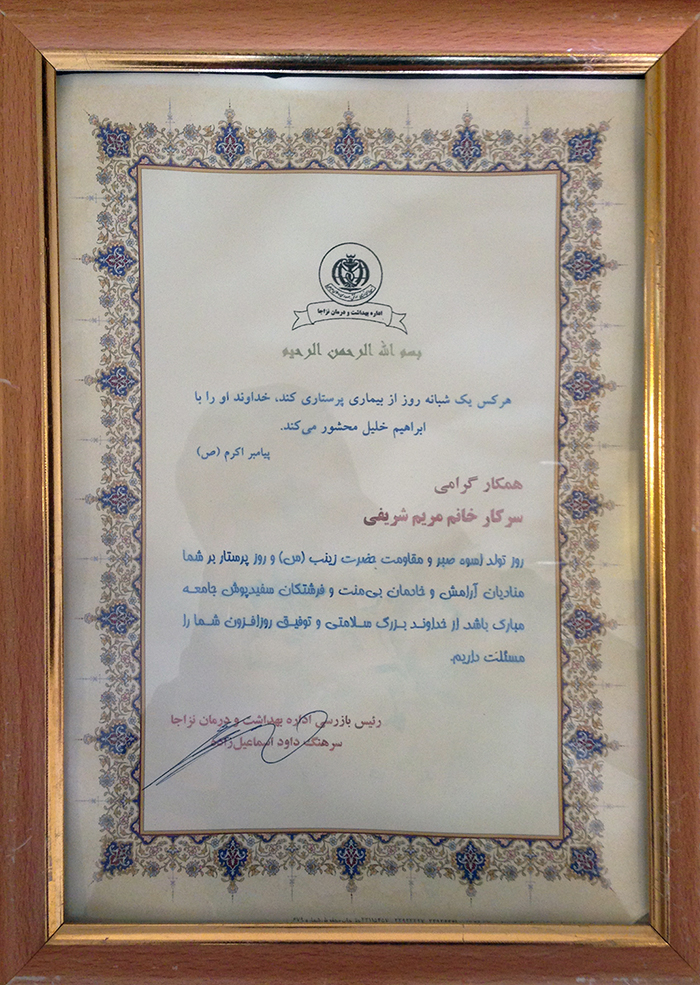 اداره بهداشت و درمان نزاجا
بسم الله الرحمن الرحیم
هرکس یک شبانه روز از بیماری پرستاری کند، خداوند او را با
ابراهیم خلیل محشور می‌کند.
پیامبر اکرم (ص)
همکار گرامی
سرکار خانم مریم شریفی
روز تولد اسوه صبر و مقاومت حضرت زینب (س) و روز پرستار بر شما
منادیان آرامش و خادمان بی‌منت و فرشتگان سفیدپوش جامعه
مبارک باشد از خداوند بزرگ سلامتی و توفیق روزافزون شما را
مسئلت داریم.
رئیس بازرسی اداره بهداشت و درمان نزاجا
سرهنگ داود اسماعیل‌زاده